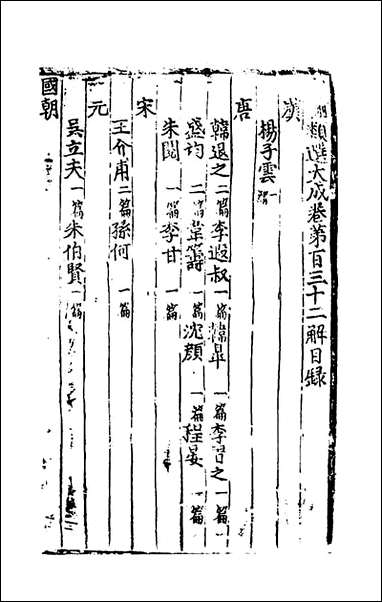 類選大成卷第百三十二解目録
漢
揚子雲一篇
唐
韓退之二篇李遐叔一篇韓皐一篇李習之一篇
盛均二篇韋籌一篇沈顔一篇程晏一篇
朱閱一篇李甘一篇
宋
王介甫二篇孫何一篇
元
吳立夫一篇朱伯賢一篇
國朝